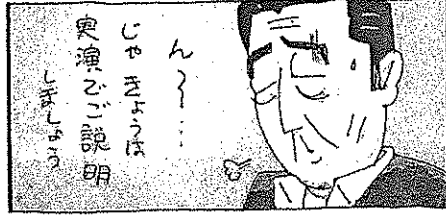 ん〜…
じゃきょうは
実演でご説明
しましょう